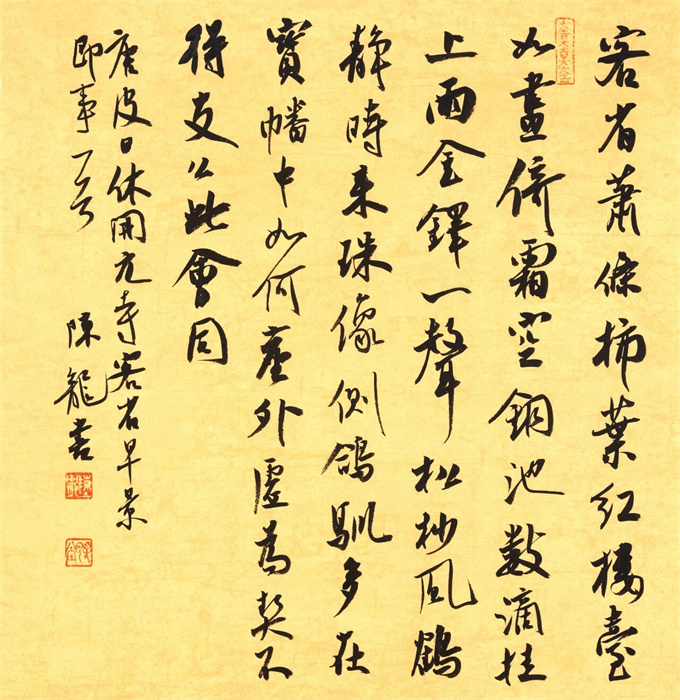 客省蕭條柿葉紅樓臺
如畫倚霜空銅池數滴桂
上雨金鐸一聲松杪風鶴
靜時来珠像側鴿馴多在
寶幡中如何塵外虛為契不
得支公此會同
唐皮日休開元寺客省早景
即事一首
陳龍書